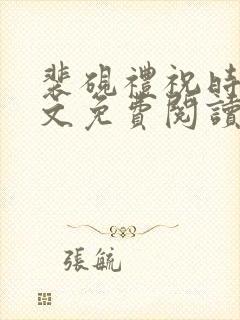 裴硯禮祝時
文免費閱讀
張毓